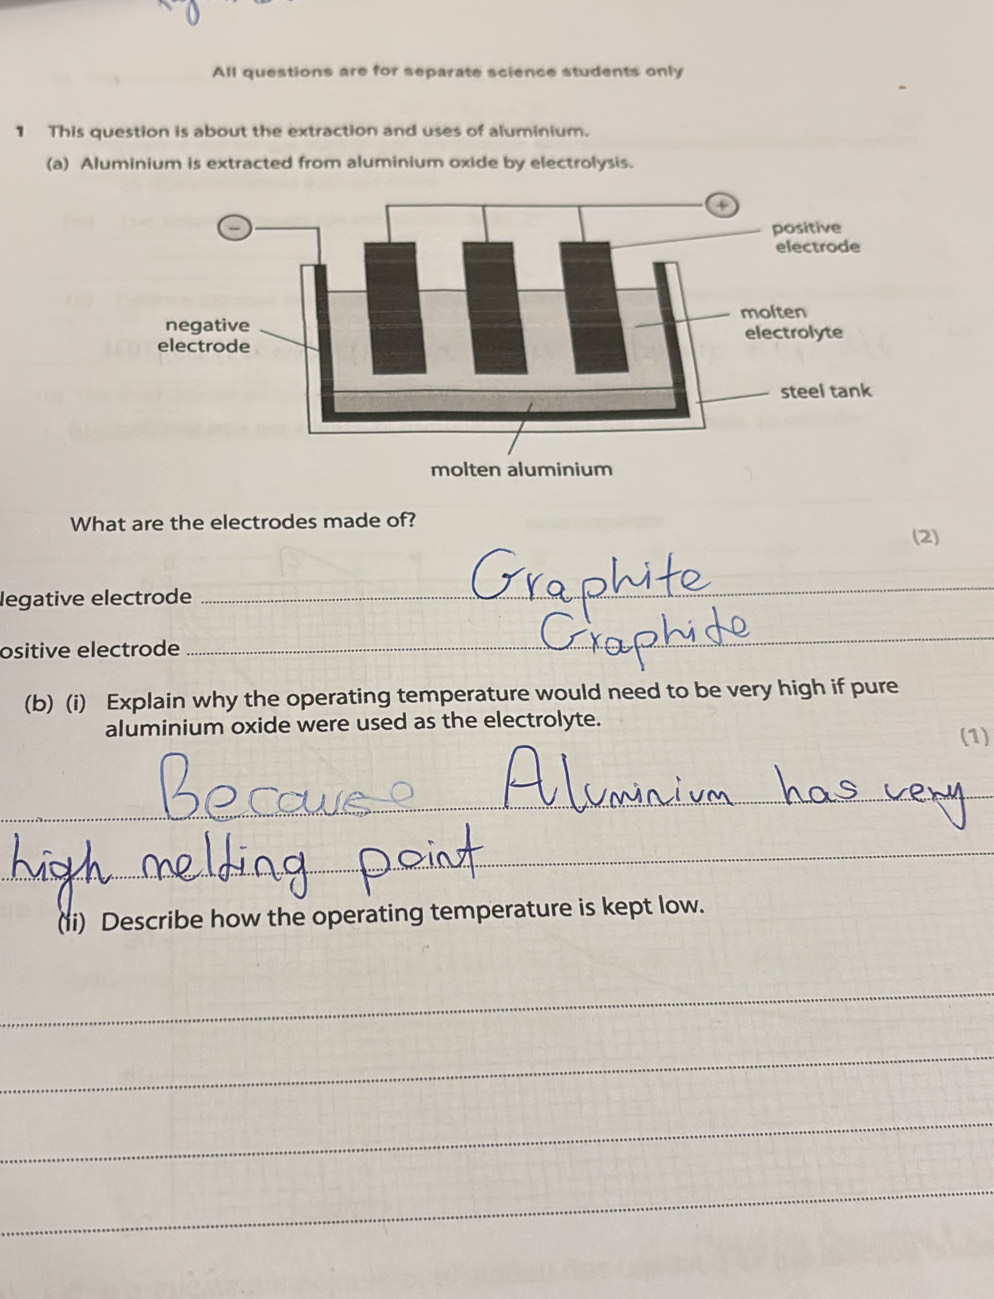 All questions are for separate science students only
1 This question is about the extraction and uses of aluminium.
(a) Aluminium is extracted from aluminium oxide by electrolysis.
− +
positive
electrode
molten
electrolyte
negative
electrode
steel tank
molten aluminium
What are the electrodes made of?
(2)
legative electrode Graphite
ositive electrode Graphite
(b) (i) Explain why the operating temperature would need to be very high if pure
aluminium oxide were used as the electrolyte.
(1)
Because Aluminium has very
high melting point
(ii) Describe how the operating temperature is kept low.